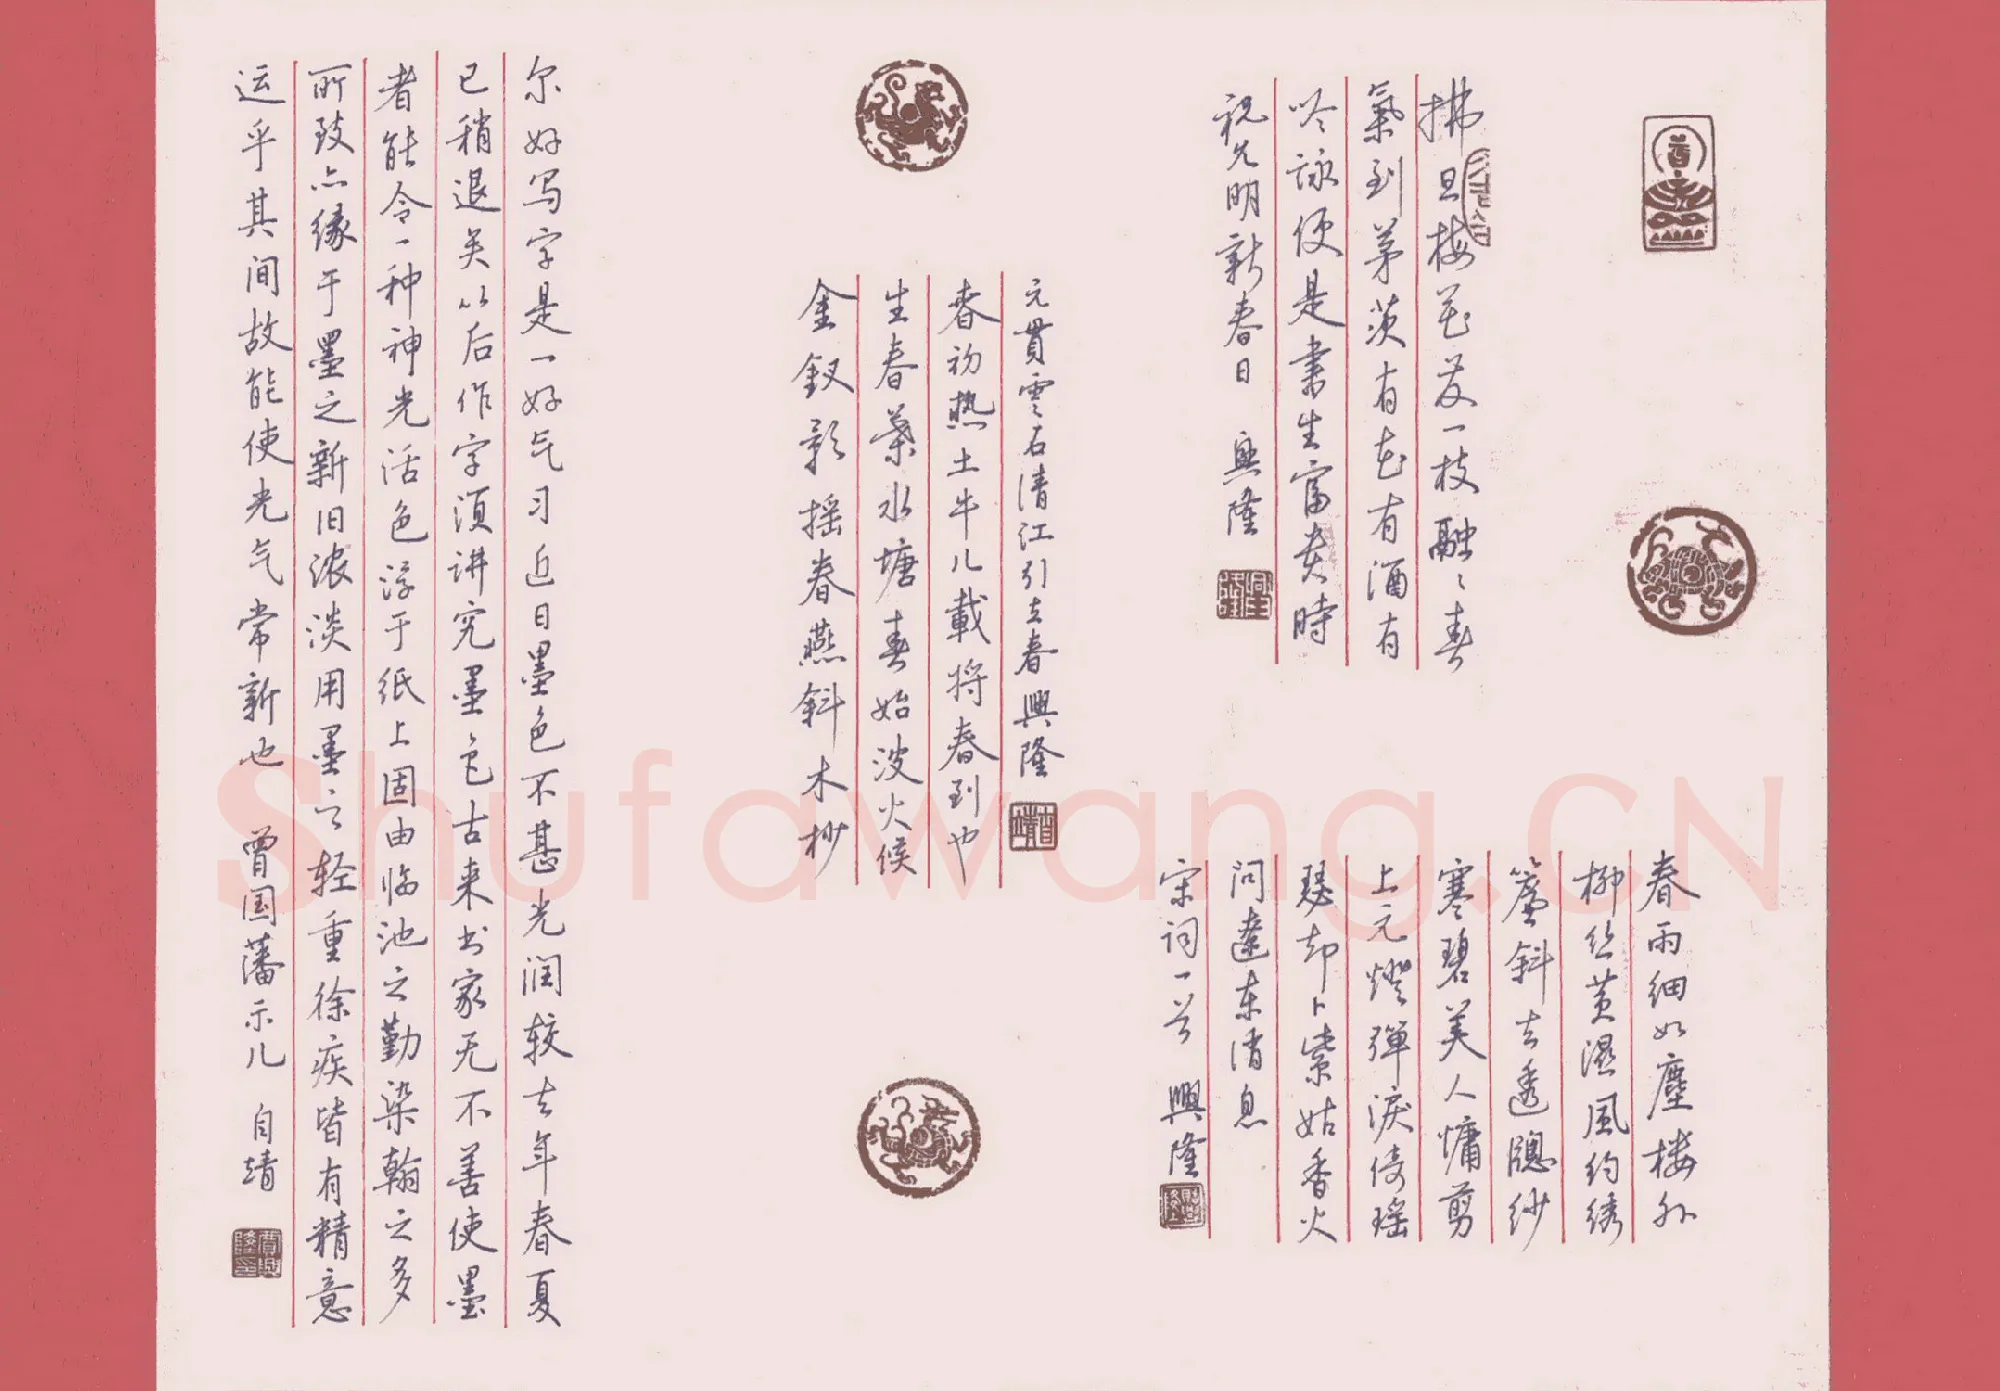 拂旦梅花发一枝融々春
氣到茅茨有花有酒有
吟詠便是書生富贵時
祝允明新春日 興隆
春雨细如塵楼外
柳丝黄濕風约绣
簾斜去透牕纱
寒碧美人慵剪
上元燈彈淚倚瑶
瑟却卜紫姑香火
问遼东消息
宋词一首 興隆
元貫雲石清江引立春興隆
金釵影摇春燕斜木杪
生春葉水塘春始波火候
春初热土牛儿載将春到也
尔好写字是一好气习近日墨色不甚光润较去年春夏
已稍退矣以后作字须讲究墨色古来书家无不善使墨
者能令一种神光活色浮于纸上固由临池之勤染翰之多
所致亦缘于墨之新旧浓淡用墨之轻重徐疾皆有精意
运乎其间故能使光气常新也 曾国藩示儿 自靖
Shufawang.CN